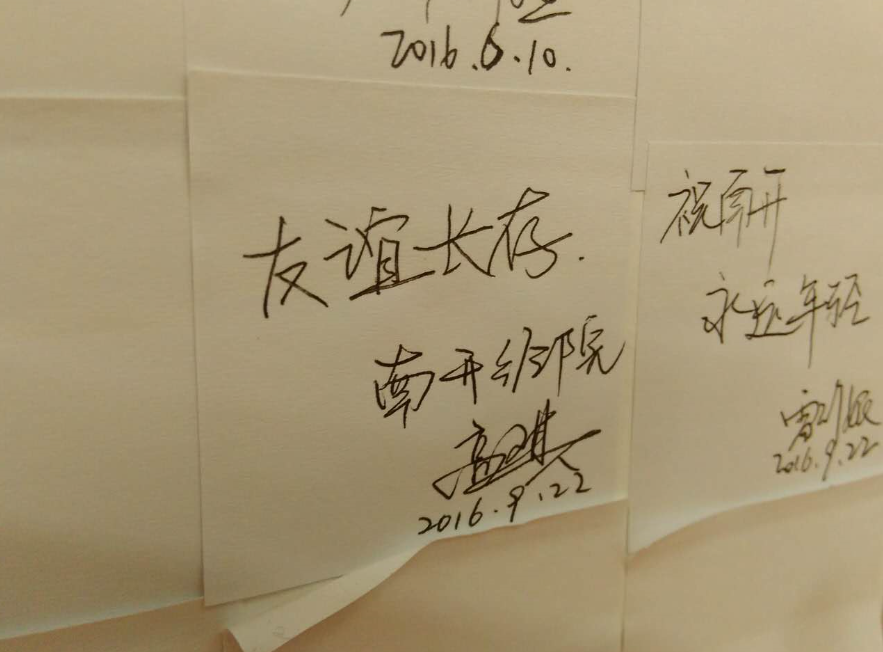 2016.6.10.
友谊长存.
南开经院
2016.9.22
祝南开
永远年轻
2016.9.22